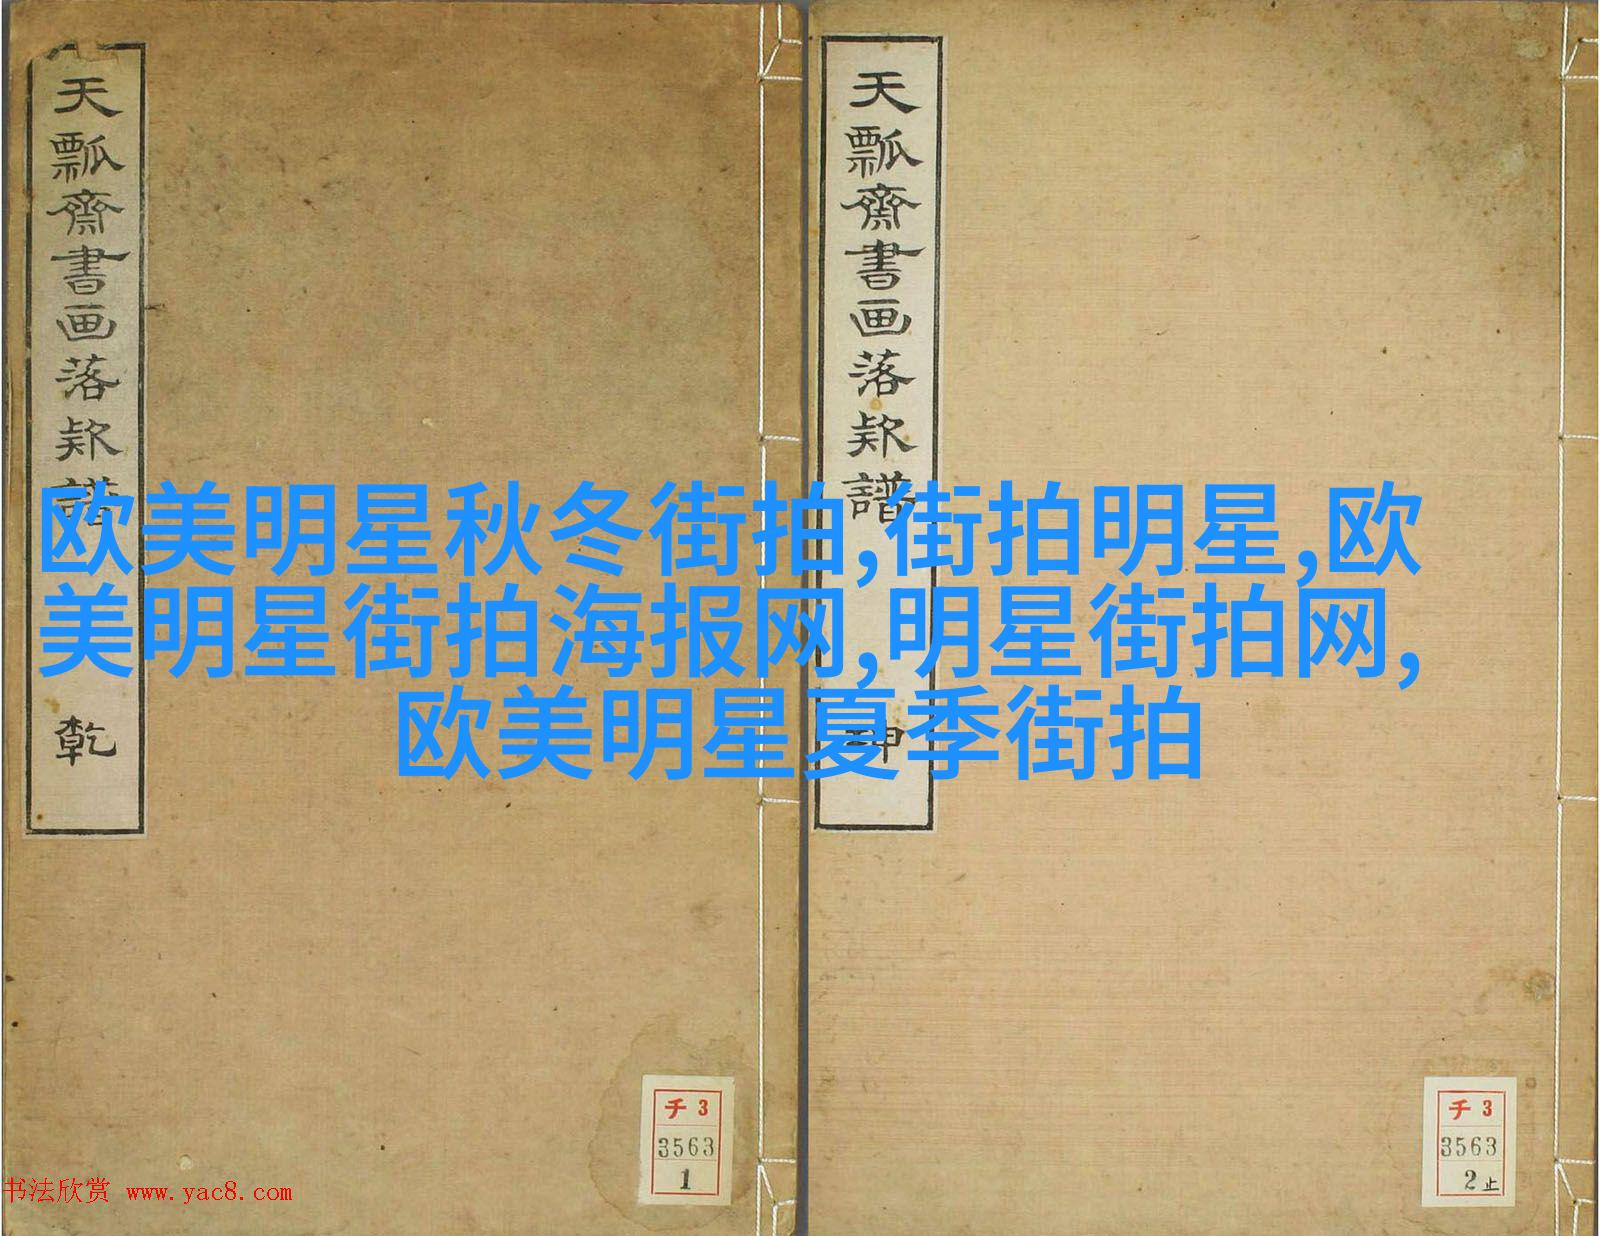 天瓢齋書画落款譜
乾
天瓢齋書画落款譜
坤
欧美明星秋冬街拍,街拍明星,欧
美明星街拍海报网,明星街拍网,
欧美明星夏季街拍
チ 3
3563
1
チ 3
3563
2止
书法欣赏 www.yac8.com